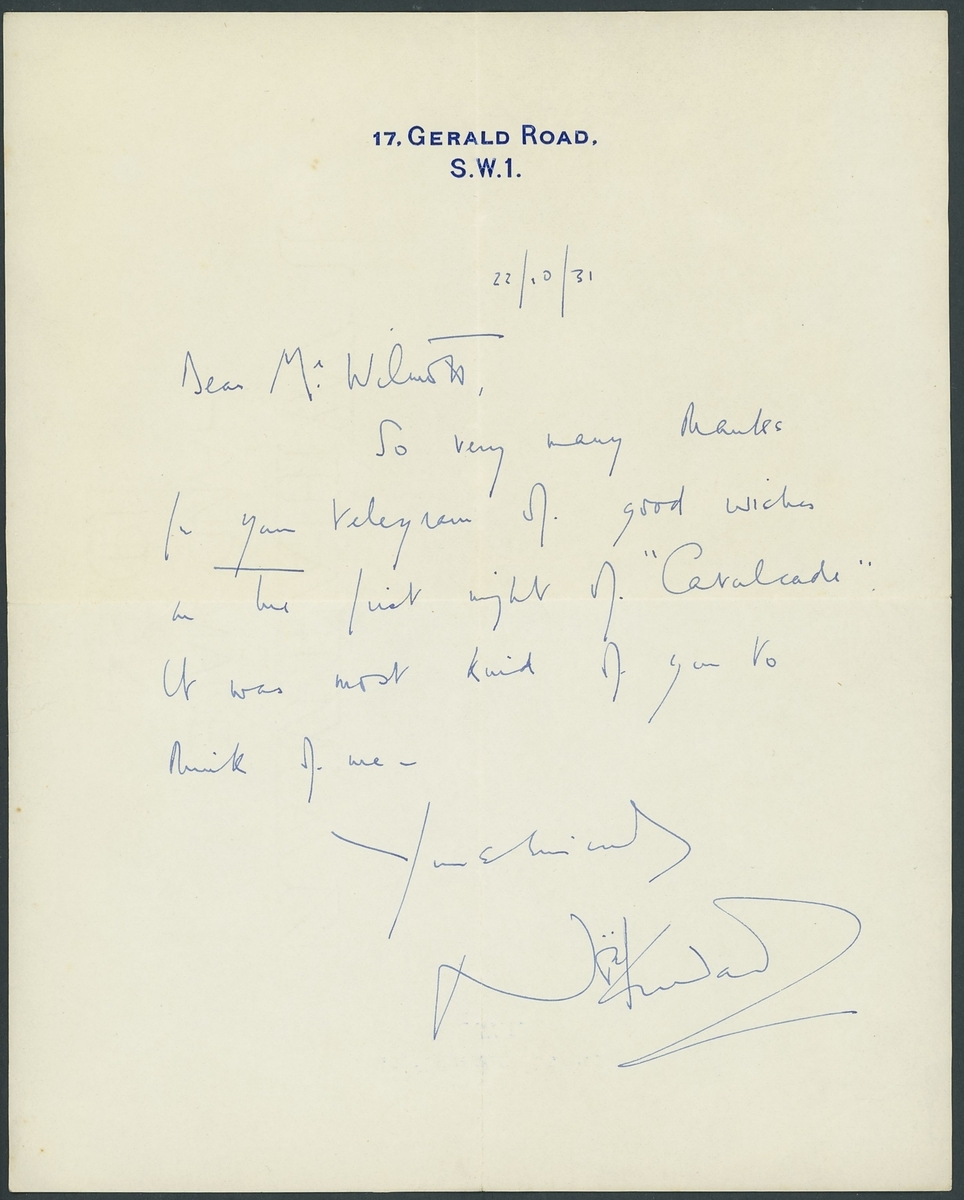 17, GERALD ROAD,
S.W.1.
22/10/31
Dear Mr. Wilmott,
So very many thanks
for your telegram of good wishes
on the first night of "Cavalcade".
It was most kind of you to
think of me –
Yours sincerely
Noël Coward